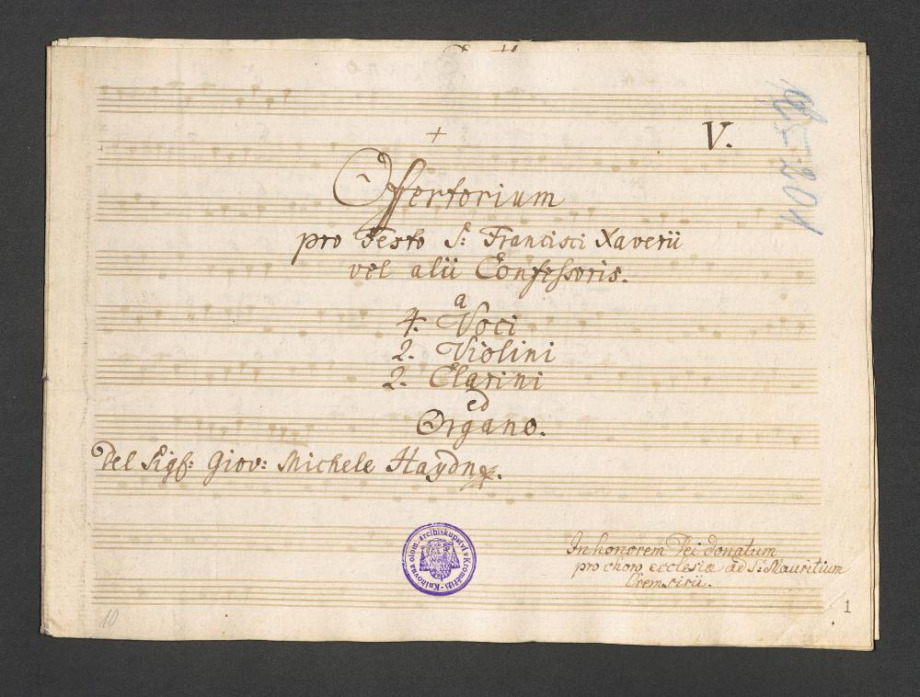 V.
+
Offertorium
pro Festo S: Francisci Xaverii
vel alii Confessoris.
a
4. Voci
2. Violini
2. Clarini
ed
Organo.
Del Sigf: Giov: Michele Haydn
Knihovna olom. arcibiskupství v Kroměříži
In honorem Dei donatum
pro choro ecclesiæ ad S: Mauritium
Cremsirii.
10
1